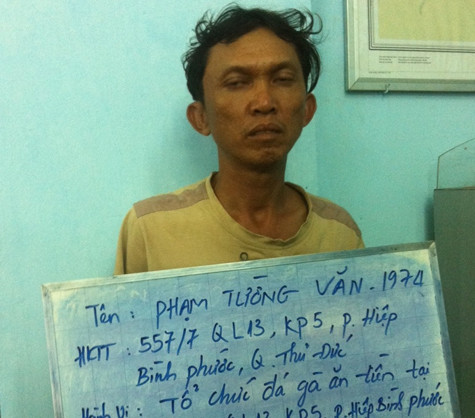 Tên : PHẠM TƯỜNG VĂN - 1974
HKTT : 557/7 QL13, KP5, P. Hiệp
Bình phước, Q. Thủ Đức
Hành Vi : Tổ chức đá gà ăn tiền tại
QL13, KP5, P. Hiệp Bình phước